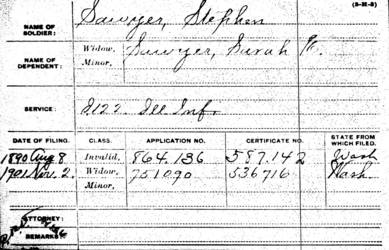 (3-M-8)
NAME OF SOLDIER: Sawyer, Stephen
NAME OF DEPENDENT: Widow, Sawyer, Sarah
Minor,
SERVICE: Ill. Inf.
DATE OF FILING. CLASS. APPLICATION NO. CERTIFICATE NO. STATE FROM WHICH FILED.
1890 Aug 8 Invalid, 864.136 587.142 Wash
1901 Nov. 2. Widow, 751090 536716 Wash.
Minor,
ATTORNEY:
REMARKS: